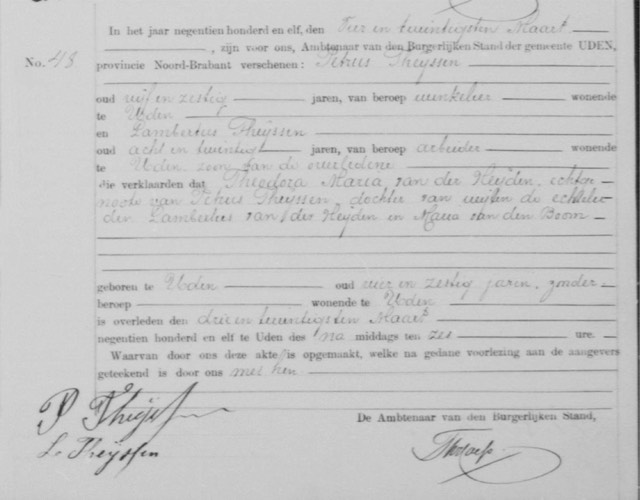 In het jaar negentien honderd en elf, den Vier en twintigsten Maart
, zijn voor ons, Ambtenaar van den Burgerlijken Stand der gemeente UDEN,
No. 48. provincie Noord-Brabant verschenen: Petrus Theyssen
oud vijf en zestig jaren, van beroep winkelier wonende
te Uden
en Lambertus Theyssen
oud acht en twintig jaren, van beroep arbeider wonende
te Uden, zoon van de overledene
die verklaarden dat Theodora Maria van der Heyden, echtge-
noote van Petrus Theyssen, dochter van wijlen de echtelie-
den Lambertus van der Heyden en Maria van den Boom
geboren te Uden oud vier en zestig jaren, zonder
beroep wonende te Uden
is overleden den drie en twintigsten Maart
negentien honderd en elf te Uden des na middags ten zes ure.
Waarvan door ons deze akte is opgemaakt, welke na gedane voorlezing aan de aangevers
geteekend is door ons met hen
De Ambtenaar van den Burgerlijken Stand,
P Theyssen
L. Theyssen